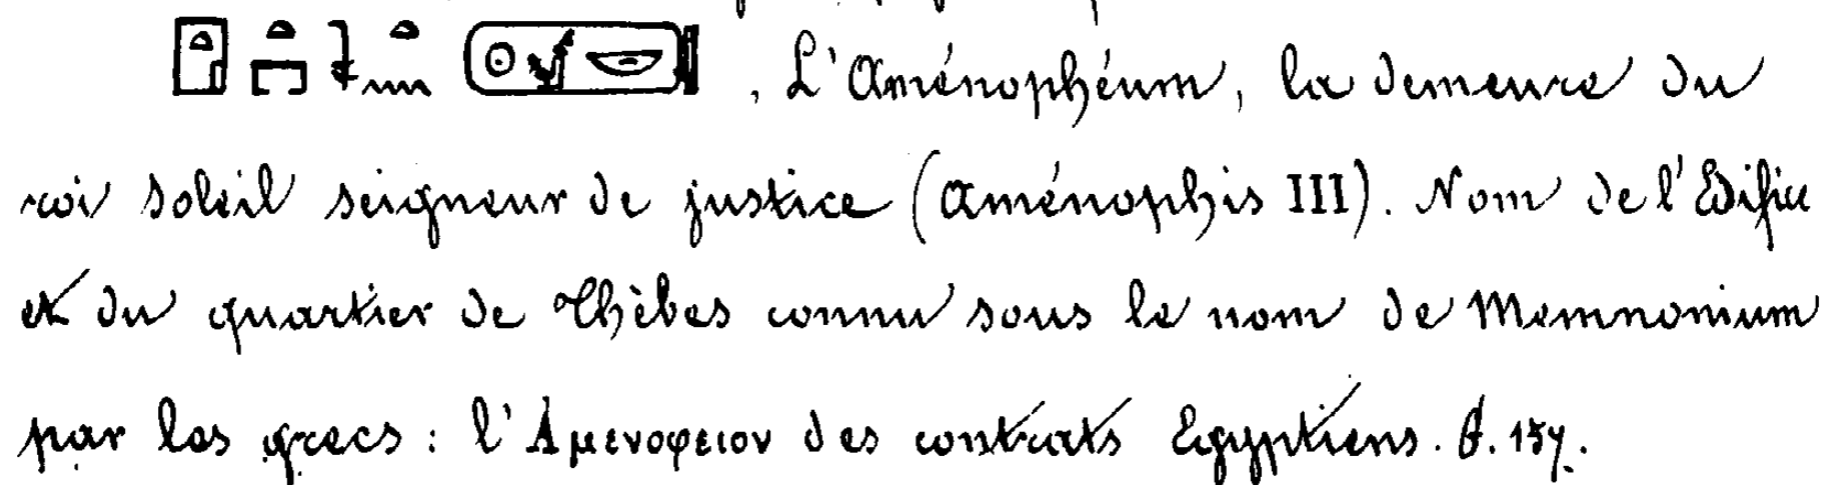 , L'Aménophéum, la demeure du
roi soleil seigneur de justice (Aménophis III). Nom de l'Edifice
et du quartier de Thèbes connu sous le nom de Memnonium
par les grecs : l'Αμενοφειον des contrats Egyptiens.